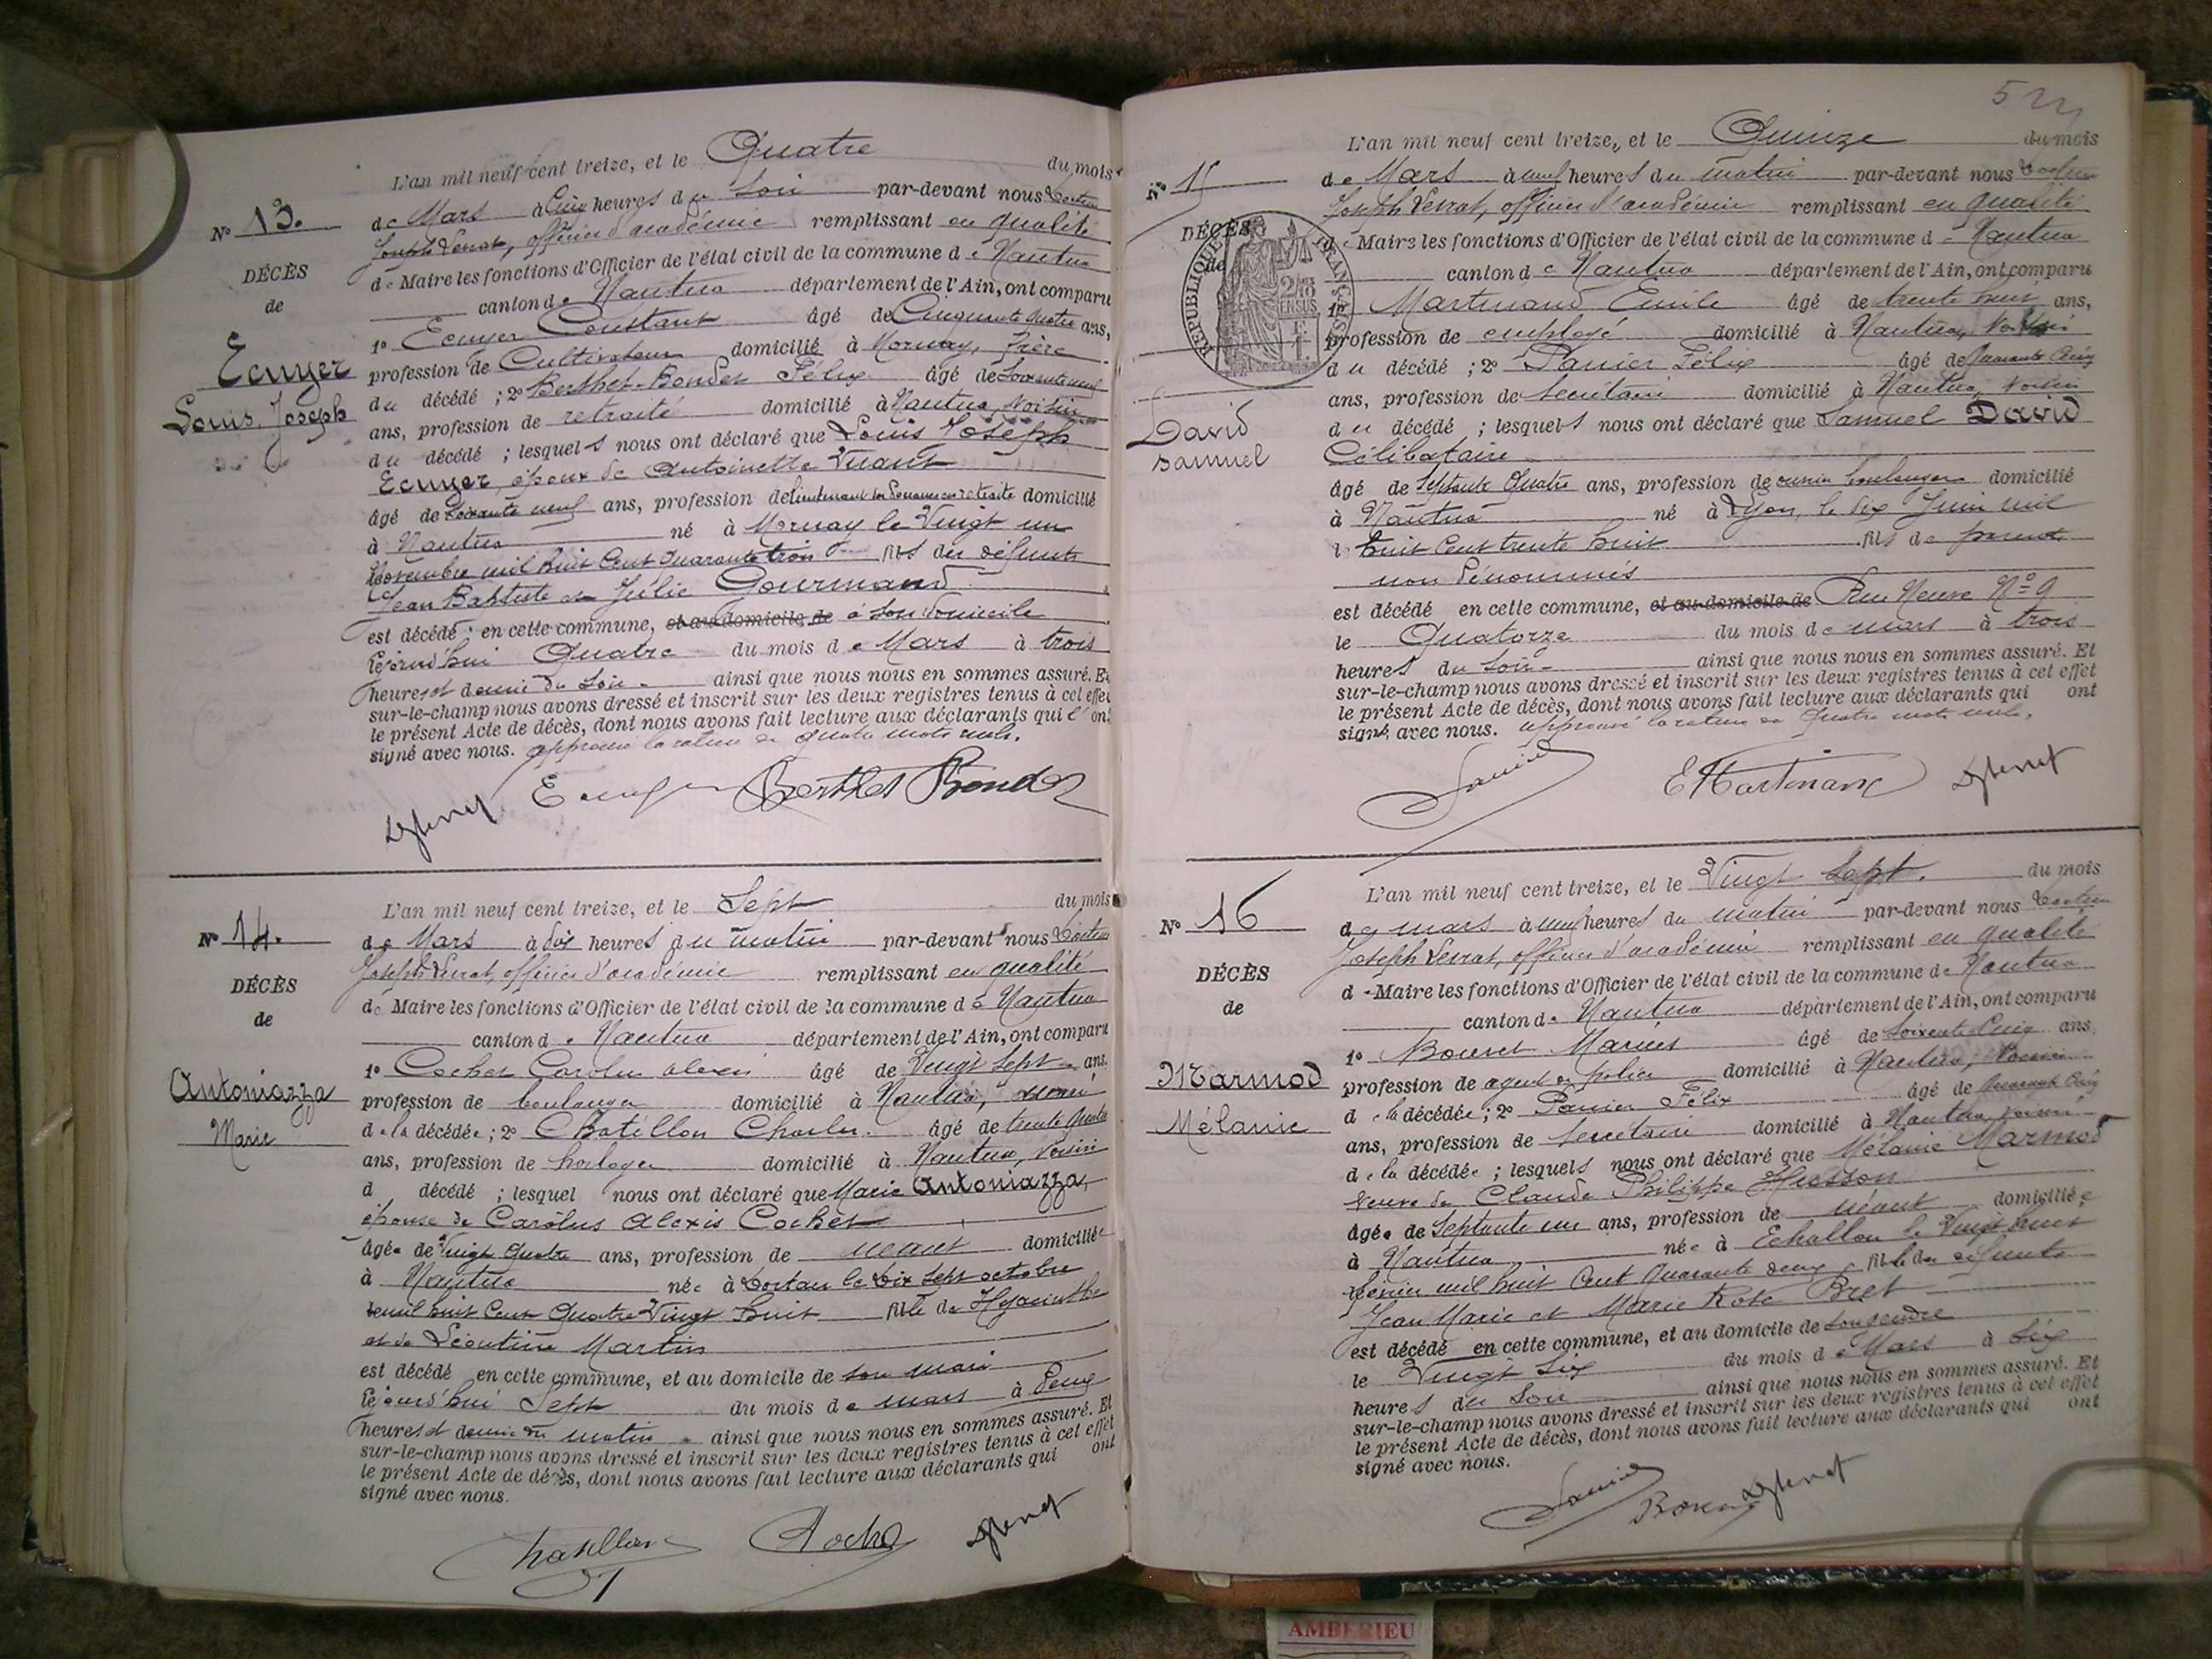 L'an mil neuf cent treize, et le Quatre du mois
de Mars à Cinq heures du Soir par-devant nous Docteur
Joseph Verrat, officier d'académie remplissant en qualité
de Maire les fonctions d'Officier de l'état civil de la commune de Nantua
canton de Nantua département de l'Ain, ont comparu
1º Ecuyer Constant âgé de Cinquante quatre ans,
profession de Cultivateur domicilié à Mornay, frère
du décédé ; 2º Berthet-Bondet Félix âgé de Soixante neuf
ans, profession de retraité domicilié à Nantua, voisin
du décédé ; lesquels nous ont déclaré que Louis Joseph
Ecuyer, époux de Antoinette
âgé de Soixante neuf ans, profession de lieutenant des Douanes en retraite domicilié
à Nantua né à Mornay le Vingt un
Novembre mil huit Cent Quarante trois fils des défunts
Jean Baptiste et Julie Gourmand
est décédé en cette commune, et au domicile de à son domicile
cejourd'hui Quatre du mois de Mars à trois
heures et demie du Soir ainsi que nous nous en sommes assuré. Et
sur-le-champ nous avons dressé et inscrit sur les deux registres tenus à cet effet
le présent Acte de décès, dont nous avons fait lecture aux déclarants qui l'ont
signé avec nous. approuvé la rature de quatre mots nuls.
Ecuyer Berthet Bondet
Nº 13.
DÉCÈS
de
Ecuyer
Louis, Joseph
L'an mil neuf cent treize, et le Sept du mois
de Mars à dix heures du matin par-devant nous Docteur
Joseph Verrat, officier d'académie remplissant en qualité
de Maire les fonctions d'Officier de l'état civil de la commune de Nantua
canton de Nantua département de l'Ain, ont comparu
1º Cochet Carolus Alexis âgé de Vingt Sept ans.
profession de boulanger domicilié à Nantua, mari
de la décédée ; 2º Chatillon Charles âgé de trente quatre
ans, profession de horloger domicilié à Nantua, voisin
d décédé ; lesquel nous ont déclaré que Marie Antoniazza,
épouse de Carolus Alexis Cochet
âgée de Vingt Quatre ans, profession de néant domiciliée
à Nantua née à Dortan le dix Sept octobre
mil huit Cent Quatre Vingt huit fille de Hyacinthe
et de Léontine Martin
est décédé en cette commune, et au domicile de son mari
cejourd'hui Sept du mois de mars à deux
heures et demie du matin ainsi que nous nous en sommes assuré. Et
sur-le-champ nous avons dressé et inscrit sur les deux registres tenus à cet effet
le présent Acte de décès, dont nous avons fait lecture aux déclarants qui ont
signé avec nous.
Chatillon
Nº 14.
DÉCÈS
de
Antoniazza
Marie
L'an mil neuf cent treize, et le Quinze du mois
de Mars à neuf heures du matin par-devant nous Docteur
Joseph Verrat, officier d'académie remplissant en qualité
de Maire les fonctions d'Officier de l'état civil de la commune de Nantua
canton de Nantua département de l'Ain, ont comparu
1º Martinand Emile âgé de trente huit ans,
profession de employé domicilié à Nantua, Voisin
du décédé ; 2º Panier Félix âgé de Quarante Cinq
ans, profession de Secrétaire domicilié à Nantua, Voisin
du décédé ; lesquels nous ont déclaré que Samuel David
Célibataire
âgé de Septante Quatre ans, profession de ouvrier boulanger domicilié
à Nantua né à Lyon, le Six Juin mil
huit Cent trente huit fils de parents
non dénommés
est décédé en cette commune, et au domicile de Rue Neuve Nº 9
le Quatorze du mois de mars à trois
heures du Soir ainsi que nous nous en sommes assuré. Et
sur-le-champ nous avons dressé et inscrit sur les deux registres tenus à cet effet
le présent Acte de décès, dont nous avons fait lecture aux déclarants qui ont
signé avec nous. approuvé la rature de Quatre mots nuls.
Panier E Martinand
Nº 15
DÉCÈS
de
RÉPUBLIQUE FRANÇAISE
David
Samuel
L'an mil neuf cent treize, et le Vingt Sept. du mois
de mars à neuf heures du matin par-devant nous Docteur
Joseph Verrat, officier d'académie remplissant en qualité
de Maire les fonctions d'Officier de l'état civil de la commune de Nantua
canton de Nantua département de l'Ain, ont comparu
1º Bouvet Marius âgé de Soixante Cinq ans
profession de agent de police domicilié à Nantua, Voisin
de la décédée ; 2º Panier Félix âgé de Quarante Cinq
ans, profession de Secrétaire domicilié à Nantua,
de la décédée ; lesquels nous ont déclaré que Mélanie Marmod
veuve de Claude Philippe Husson
âgée de Septante un ans, profession de néant domiciliée
à Nantua née à Echallon le Vingt huit
février mil huit Cent Quarante deux fille des défunts
Jean Marie et Marie Rose Bret
est décédé en cette commune, et au domicile de son gendre
le Vingt Six du mois de Mars à Six
heures du Soir ainsi que nous nous en sommes assuré. Et
sur-le-champ nous avons dressé et inscrit sur les deux registres tenus à cet effet
le présent Acte de décès, dont nous avons fait lecture aux déclarants qui ont
signé avec nous.
Panier
Nº 16
DÉCÈS
de
Marmod
Mélanie
AMBERIEU